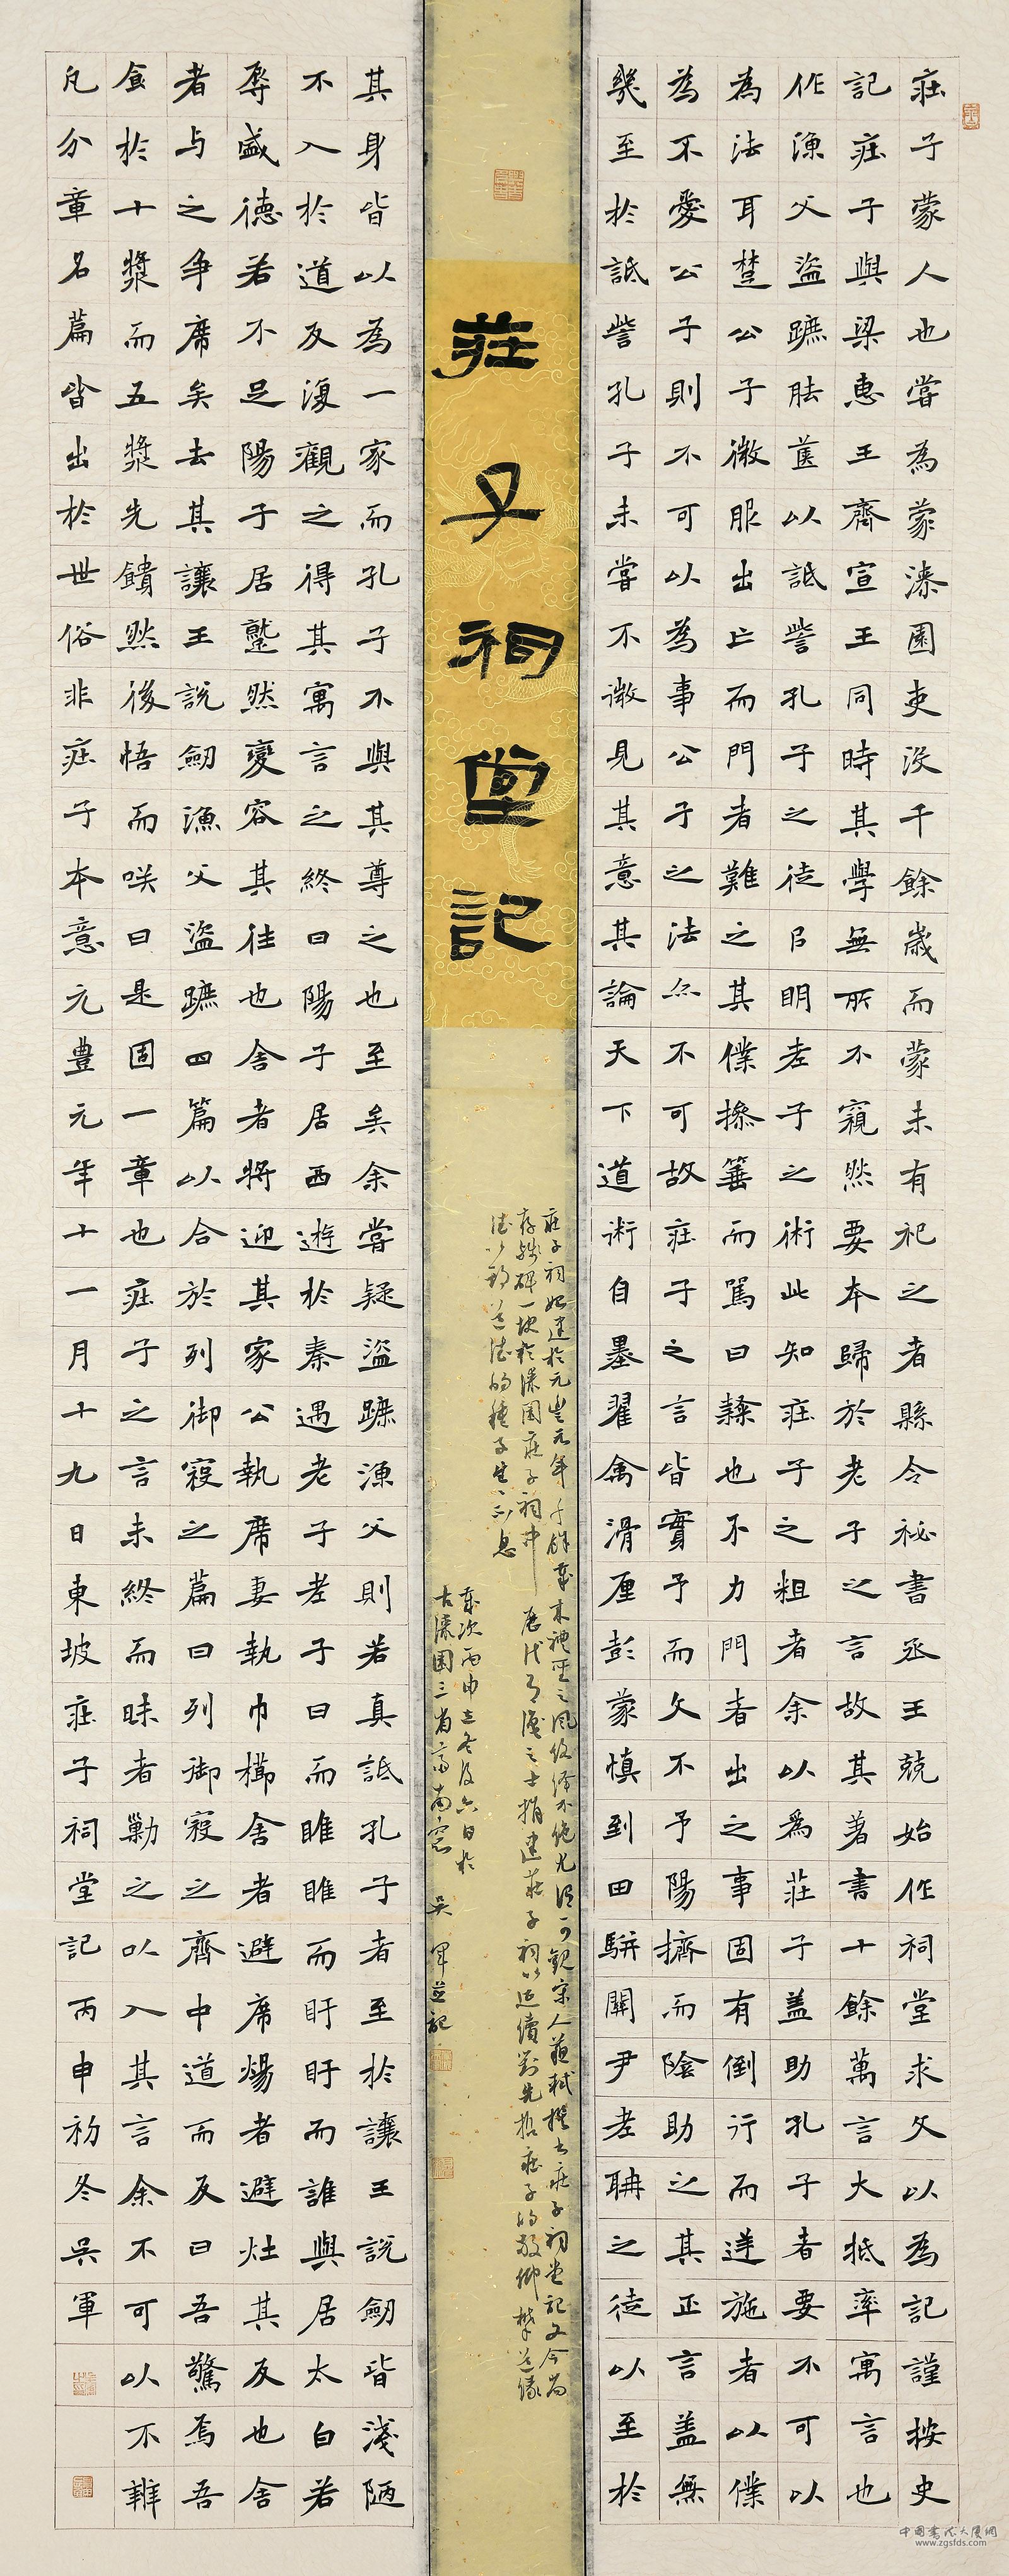 莊子蒙人也嘗為蒙漆園吏沒千餘歲而蒙未有祀之者縣令祕書丞王兢始作祠堂求文以為記謹按史
記莊子與梁惠王齊宣王同時其學無所不窺然要本歸於老子之言故其著書十餘萬言大抵率寓言也
作漁父盜蹠胠篋以詆訾孔子之徒以明老子之術此知莊子之粗者余以為莊子蓋助孔子者要不可以
為法耳楚公子微服出亡而門者難之其僕操箠而罵曰隸也不力門者出之事固有倒行而逆施者以僕
為不愛公子則不可以為事公子之法亦不可故莊子之言皆實予而文不予陽擠而陰助之其正言蓋無
幾至於詆訾孔子未嘗不微見其意其論天下道術自墨翟禽滑厘彭蒙慎到田駢關尹老聃之徒以至於
莊子祠堂記
莊子祠始建於元豐元年千餘載來禮聖之風俗綿不絕尤可觀宋人蘇軾撰書莊子祠堂記文今尚
存殘碑一塊於漆園莊子祠中歷代有識之士捐建莊子祠以延續對先哲莊子的敬仰
德以道德的種子生生不息
歲次丙申立冬後六日於
古漆園三省齋南窗 吳軍並記
其身皆以為一家而孔子不與其尊之也至矣余嘗疑盜蹠漁父則若真詆孔子者至於讓王說劍皆淺陋
不入於道反復觀之得其寓言之終曰陽子居西遊於秦遇老子老子曰而睢睢而盱盱而誰與居太白若
辱盛德若不足陽子居蹵然變容其往也舍者將迎其家公執席妻執巾櫛舍者避席煬者避灶其反也舍
者与之爭席矣去其讓王說劍漁父盜蹠四篇以合於列御寇之篇曰列御寇之齊中道而反曰吾驚焉吾
食於十漿而五漿先饋然後悟而咲曰是固一章也莊子之言未終而昧者勦之以入其言余不可以不辨
凡分章名篇皆出於世俗非莊子本意元豐元年十一月十九日東坡莊子祠堂記丙申初冬吳軍
中國書法大廈網
www.zgsfds.com